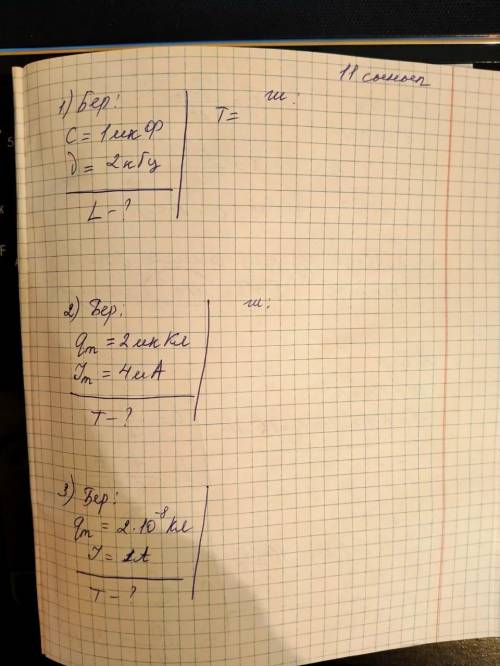 11 сынып
1) Бер:
ш:
T=
C = 1 мкФ
ν = 2 кГц
L - ?
2) Бер:
ш:
qm = 2 мкКл
Jm = 4 мА
T - ?
3) Бер:
qm = 2·10⁻⁸ Кл
J = 1A
T - ?